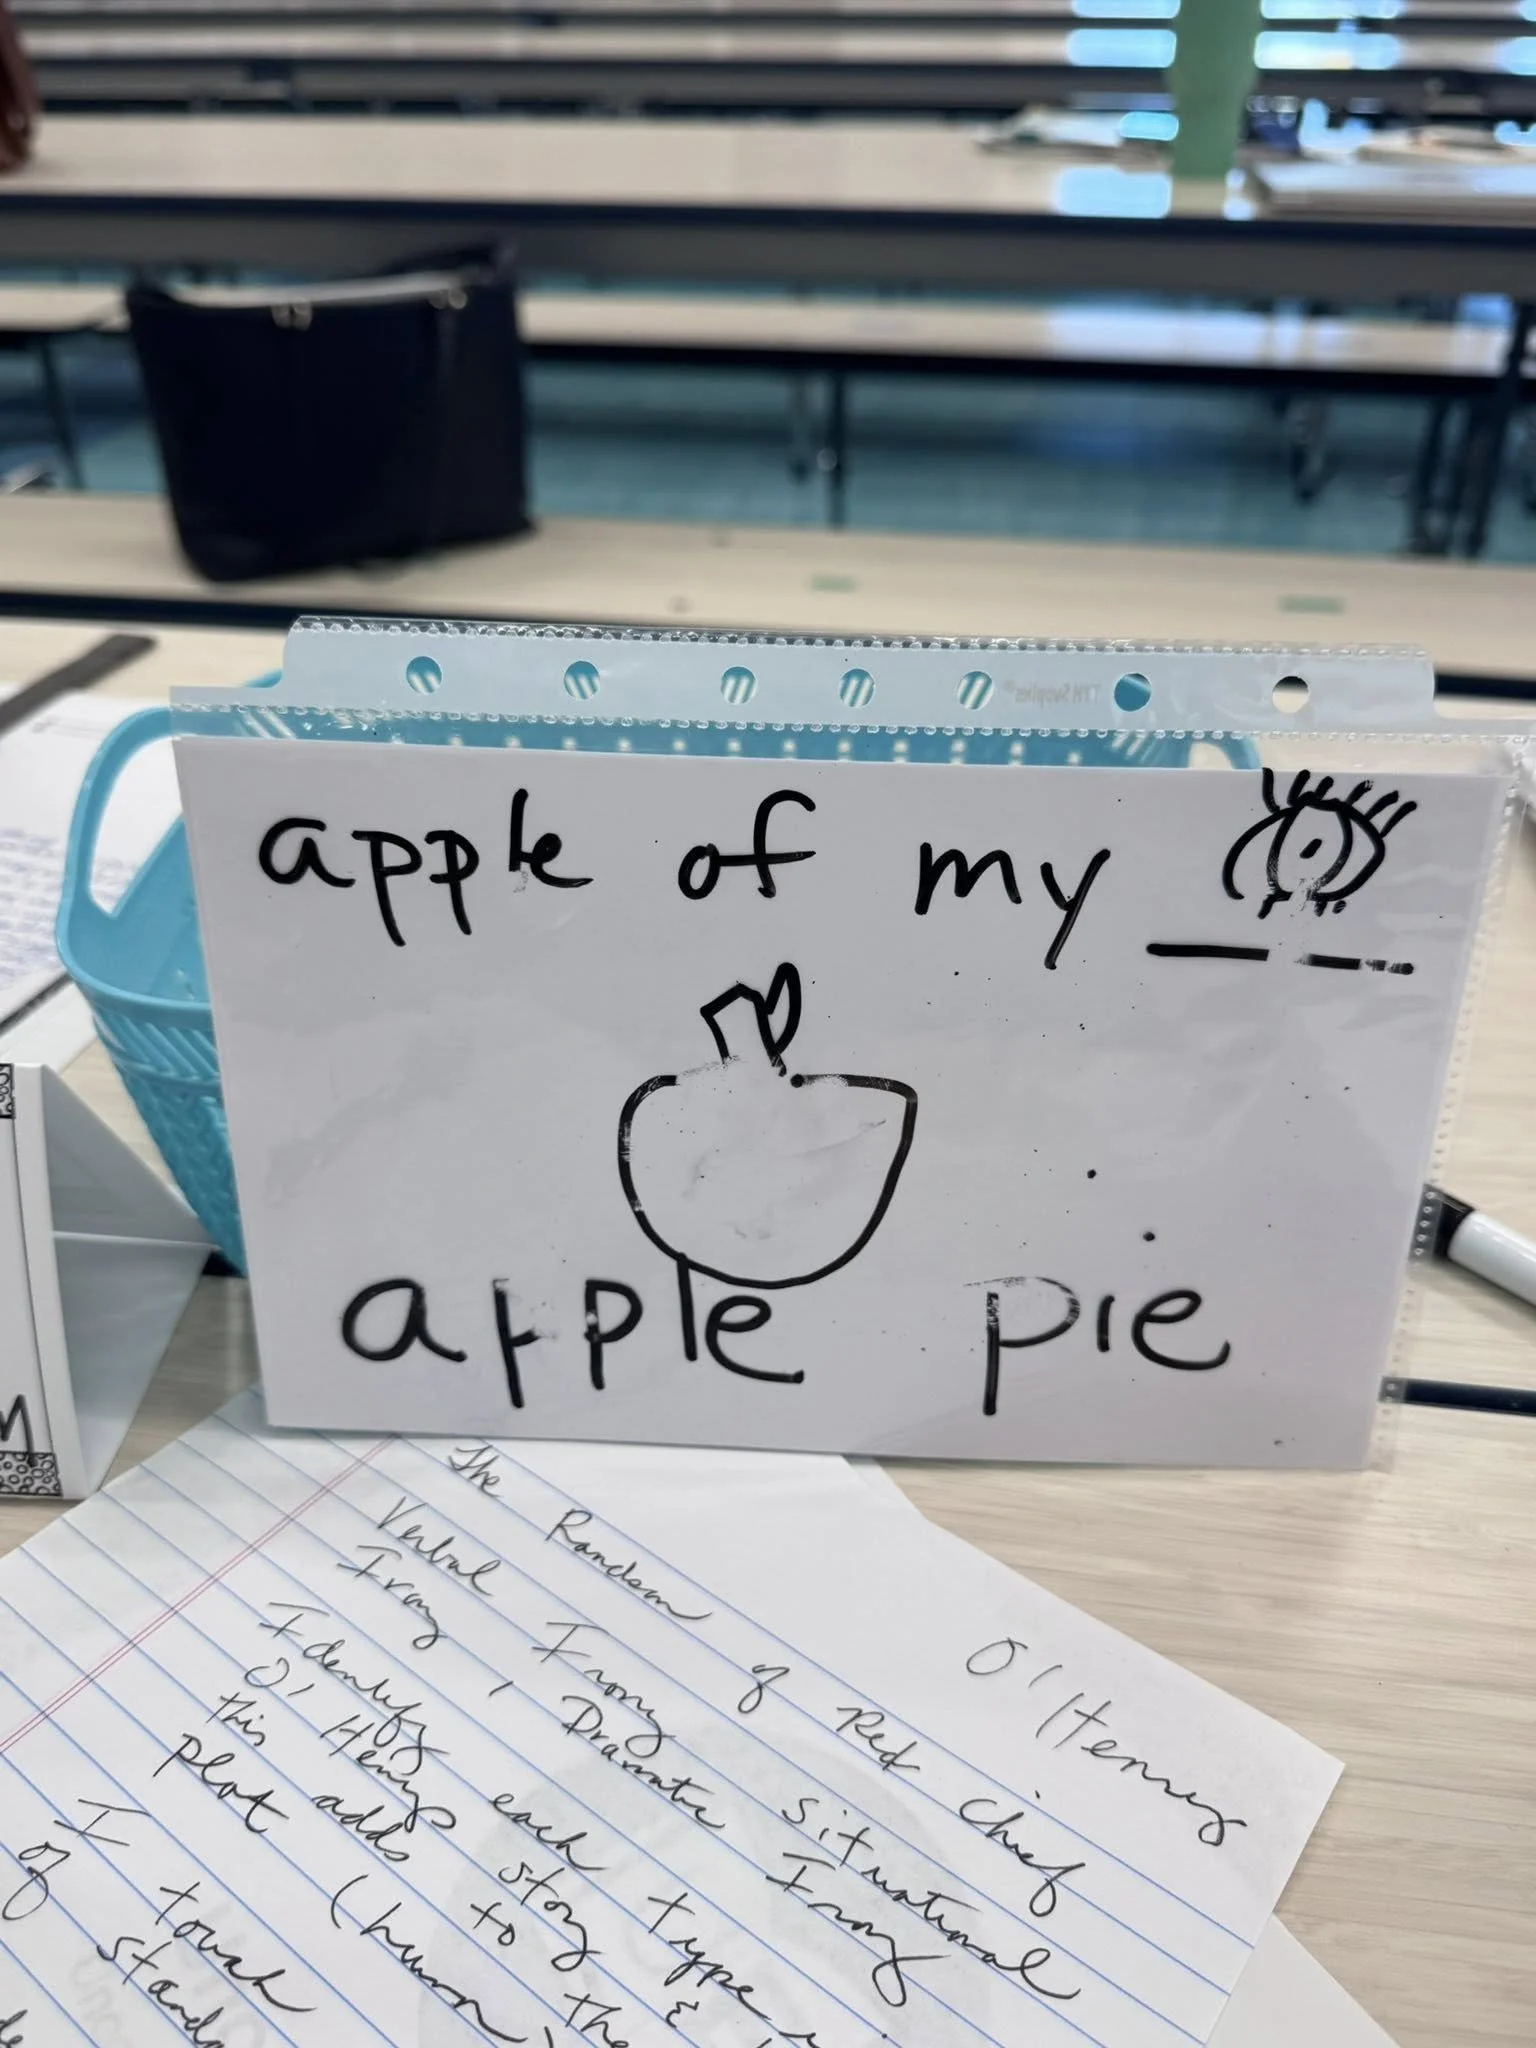 apple of my
apple pie
The Random of Red Chief
O'Henry
Verbal Irony, Situational
Irony, Dramatic Irony
Identify each type &
O, Henrys story
this adds to the
plot (humor,
I touch
of standa